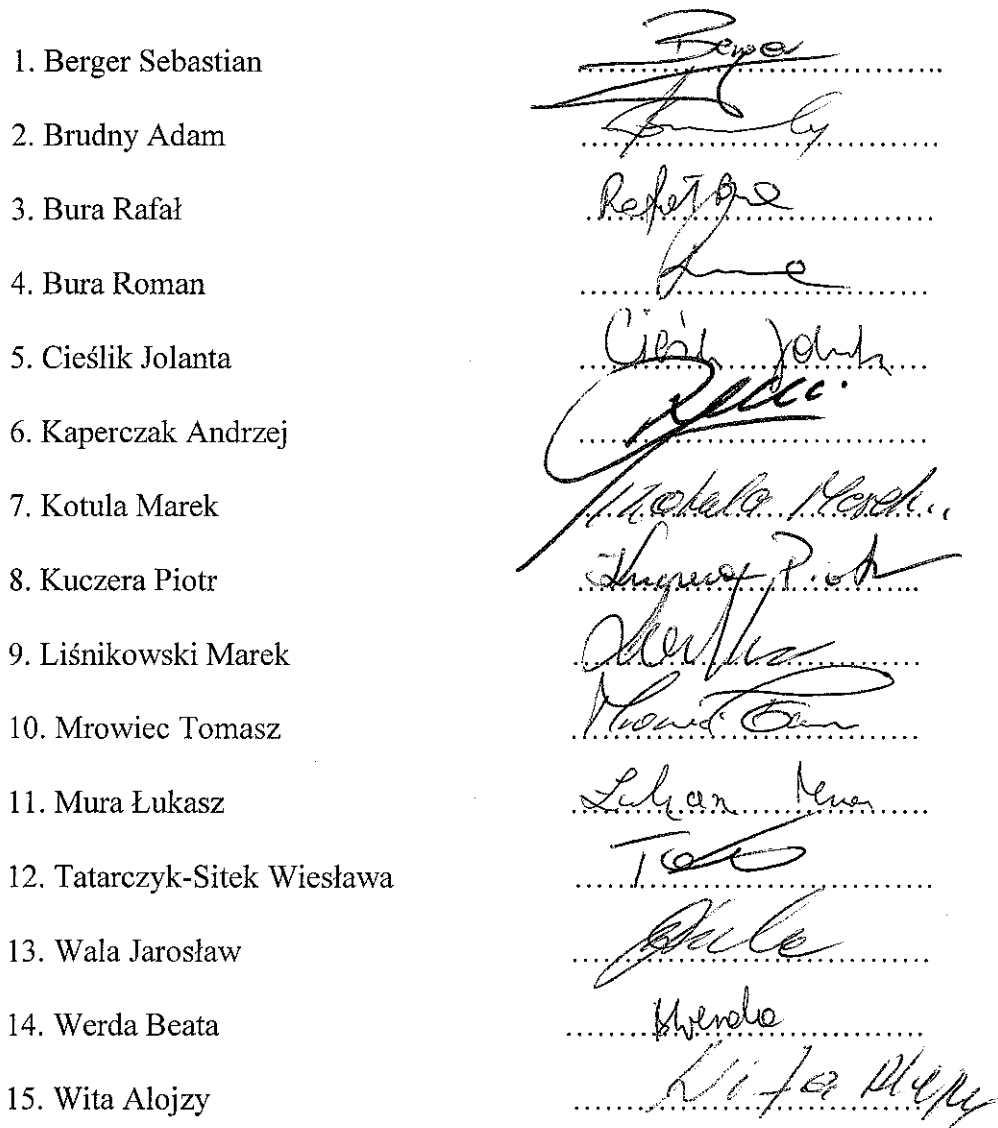 1. Berger Sebastian Berger
2. Brudny Adam
3. Bura Rafał Rafał Bura
4. Bura Roman
5. Cieślik Jolanta Cieślik Jolanta
6. Kaperczak Andrzej
7. Kotula Marek Kotula Marek
8. Kuczera Piotr Kuczera Piotr
9. Liśnikowski Marek
10. Mrowiec Tomasz
11. Mura Łukasz Łukasz Mura
12. Tatarczyk-Sitek Wiesława
13. Wala Jarosław
14. Werda Beata BWerda
15. Wita Alojzy Wita Alojzy